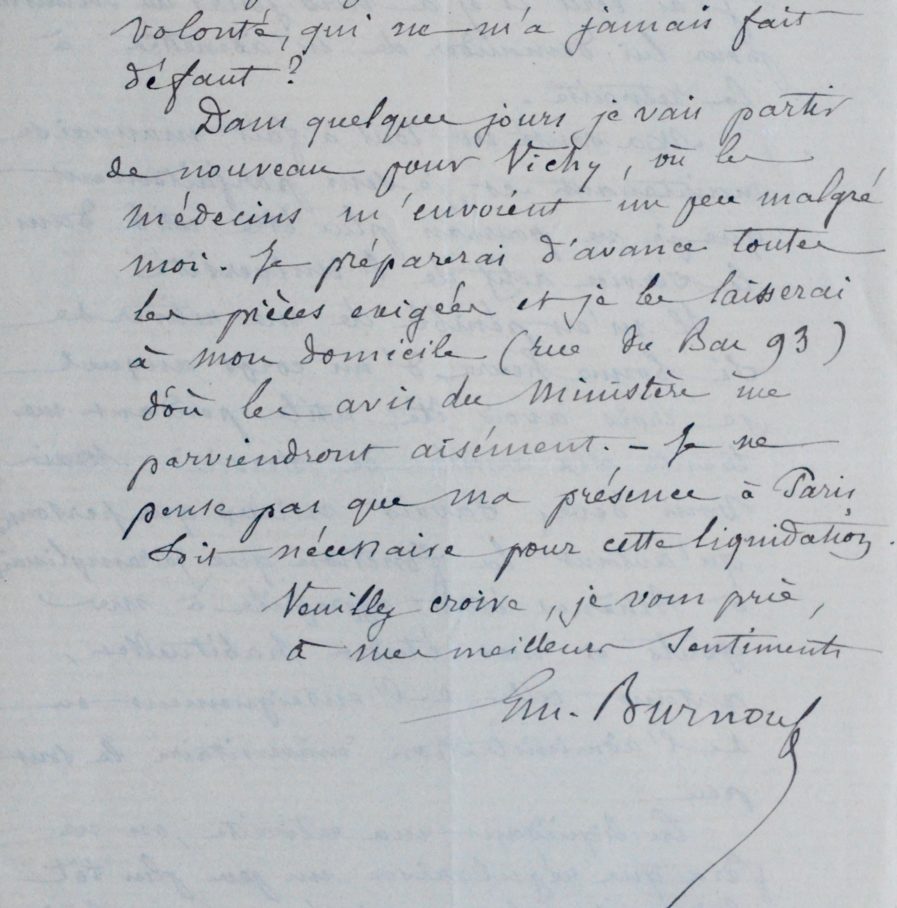 volonté, qui ne m'a jamais fait
défaut ?
Dans quelques jours je vais partir
de nouveau pour Vichy, où les
médecins m'envoient un peu malgré
moi. Je préparerai d'avance toutes
les pièces exigées et je les laisserai
à mon domicile (rue du Bac 93)
d'où les avis du Ministère me
parviendront aisément. – Je ne
pense pas que ma présence à Paris
soit nécessaire pour cette liquidation.
Veuillez croire, je vous prie,
à mes meilleurs sentiments
Em. Burnouf